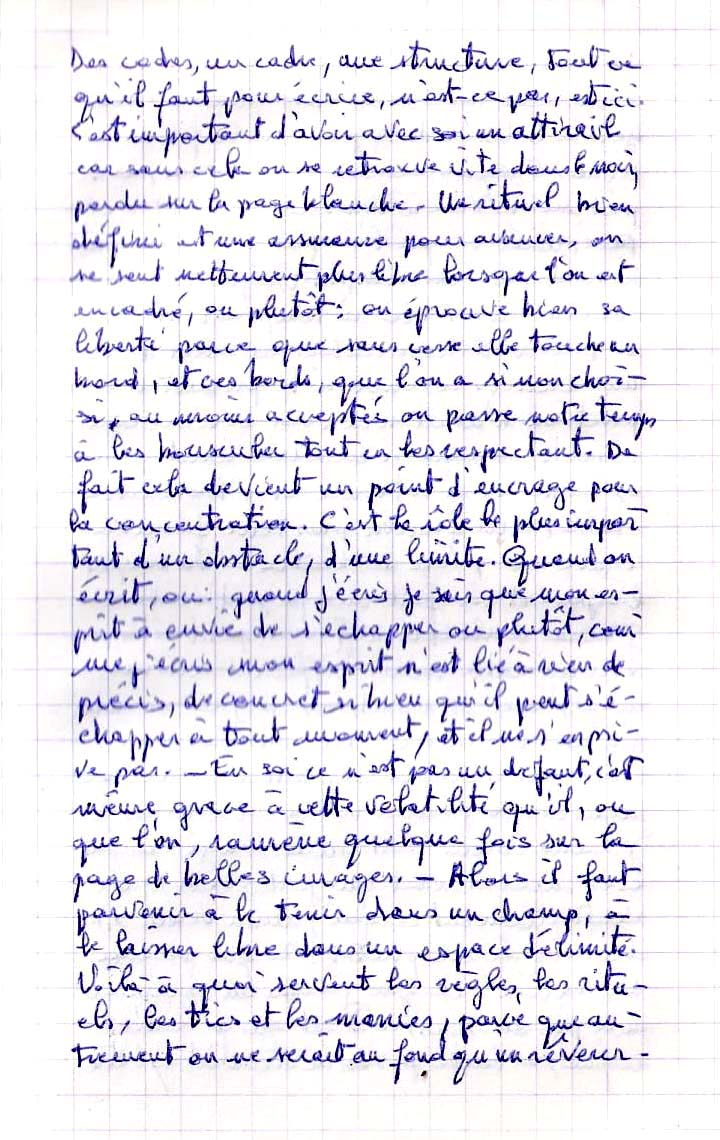 Des cadres, un cadre, une structure, tout ce
qu'il faut pour écrire, n'est-ce pas, est ici.
C'est important d'avoir avec soi un attirail
car sans cela on se retrouve vite dans le noir,
perdu sur la page blanche. Un rituel bien
défini est une assurance pour avancer, on
se sent nettement plus libre lorsque l'on est
encadré, ou plutôt : on éprouve bien sa
liberté parce que sans cesse elle touche un
bord, et ces bords, que l'on a sinon choi-
si, au moins acceptés on passe notre temps
à les bousculer tout en les respectant. De
fait cela devient un point d'encrage pour
la concentration. C'est le rôle le plus impor
tant d'un obstacle, d'une limite. Quand on
écrit, ou : quand j'écris je sais que mon es-
prit à envie de s'echapper ou plutôt, com
me j'écris mon esprit n'est lié à rien de
précis, de concret si bien qu'il peut s'é-
chapper à tout moment, et il ne s'en pri-
ve pas. — En soi ce n'est pas un défaut, c'est
même grace à cette volatilité qu'il, ou
que l'on, ramène quelque fois sur la
page de belles images. — Alors il faut
parvenir à le tenir dans un champ, à
le laisser libre dans un espace délimité.
Voilà à quoi servent les règles, les ritu-
els, les tics et les manies, parce que au-
trement on ne serait au fond qu'un rêveur.